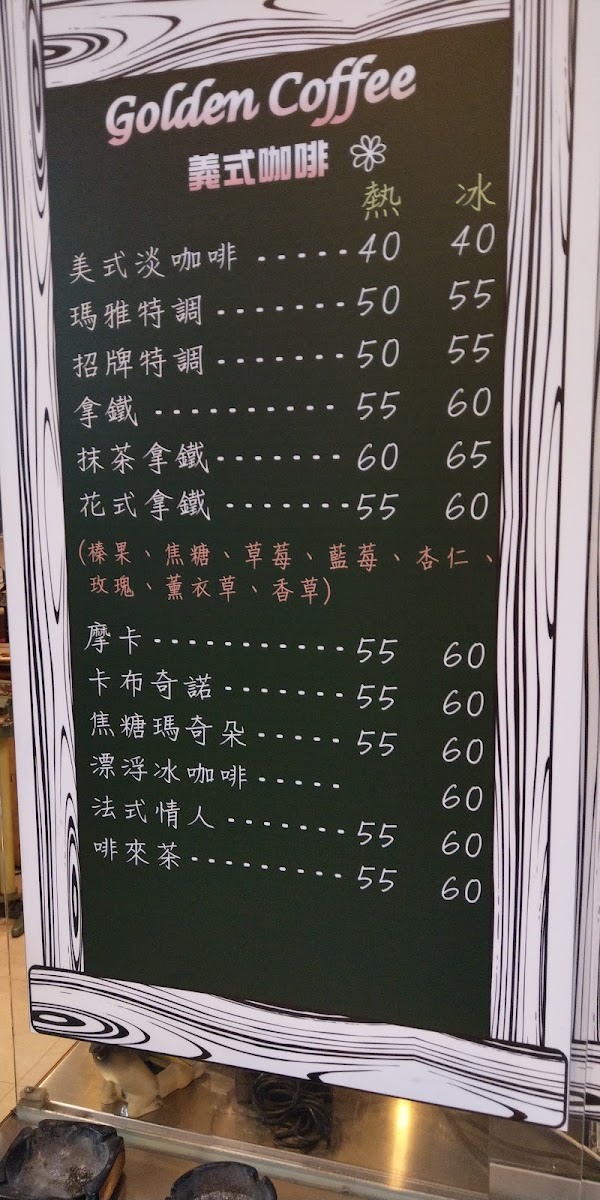 Golden Coffee
義式咖啡
熱 冰
美式淡咖啡 ----- 40 40
瑪雅特調 ------- 50 55
招牌特調 ------- 50 55
拿鐵 ---------- 55 60
抹茶拿鐵 ------- 60 65
花式拿鐵 ------- 55 60
(榛果、焦糖、草莓、藍莓、杏仁、
玫瑰、薰衣草、香草)
摩卡 ----------- 55 60
卡布奇諾 ------- 55 60
焦糖瑪奇朵 ----- 55 60
漂浮冰咖啡 ----- 60
法式情人 ------- 55 60
啡來茶 --------- 55 60